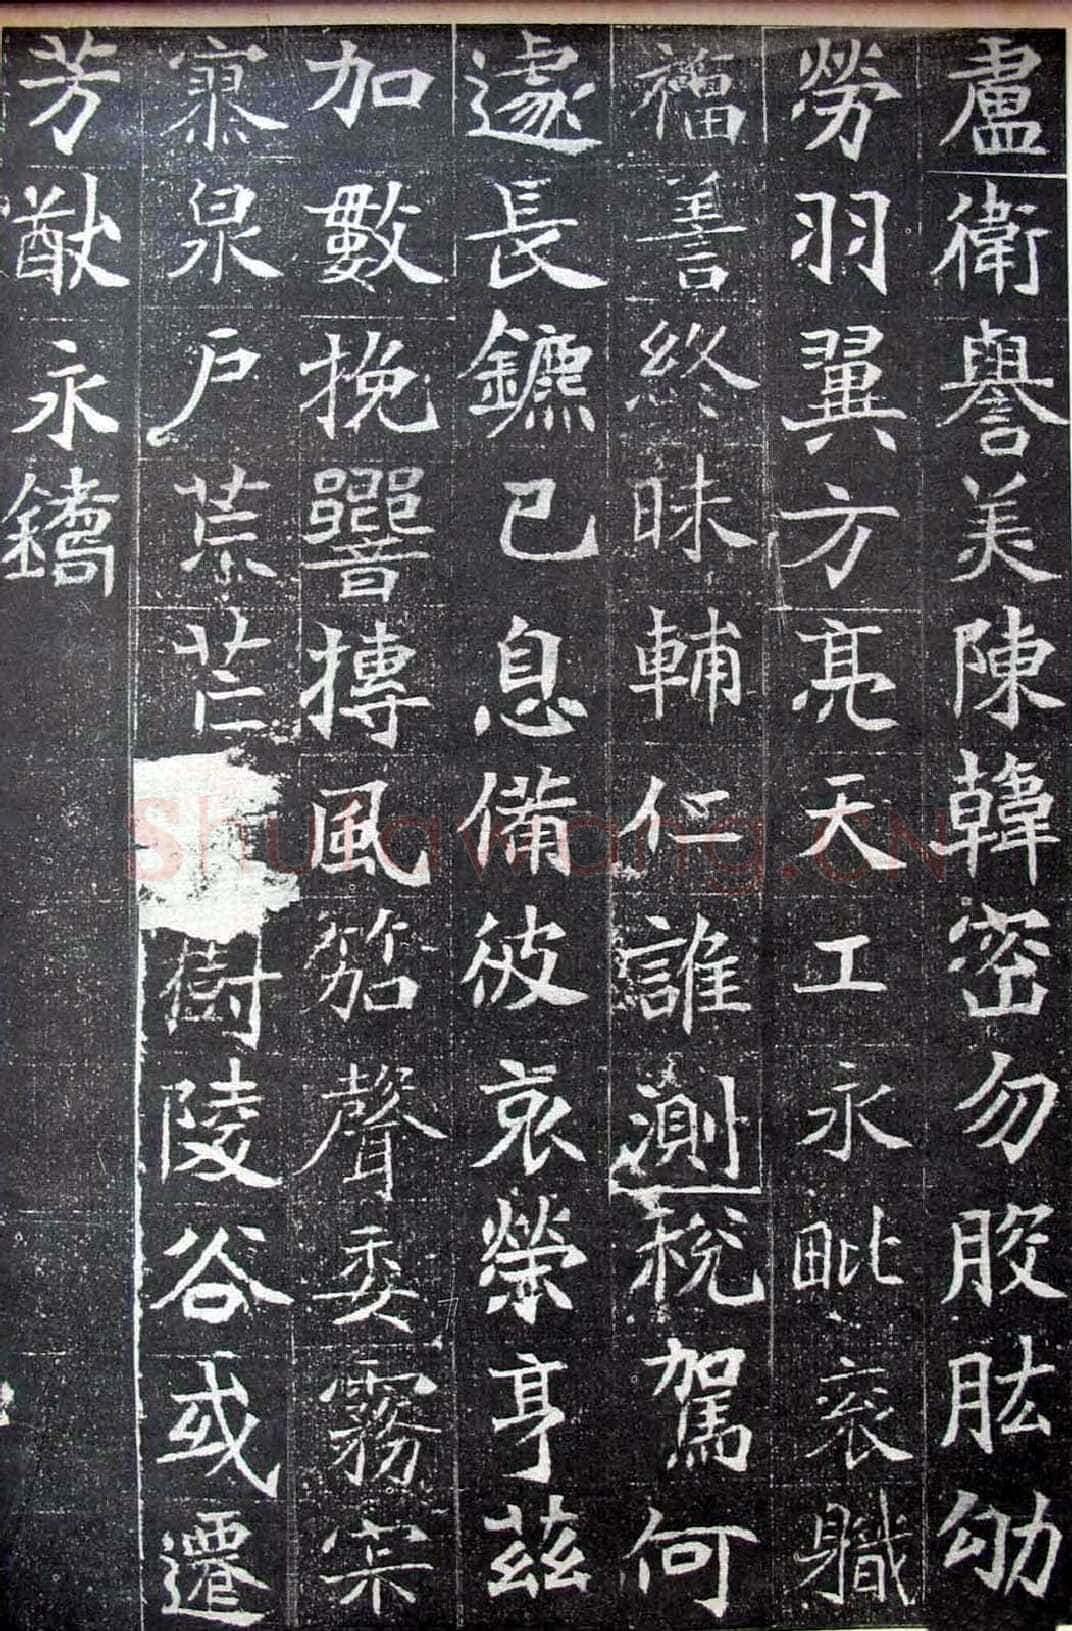 盧衛譽美陳韓密勿股肱劬
勞羽翼方亮天工永毗衮職
福善終昧輔仁誰測稅駕何
遽長鑣已息備彼哀榮亨茲
加數挽響摶風笳聲委霧寀
寮泉戶荒芒樹陵谷或遷
芳猷永鐫
Shufawang.CN